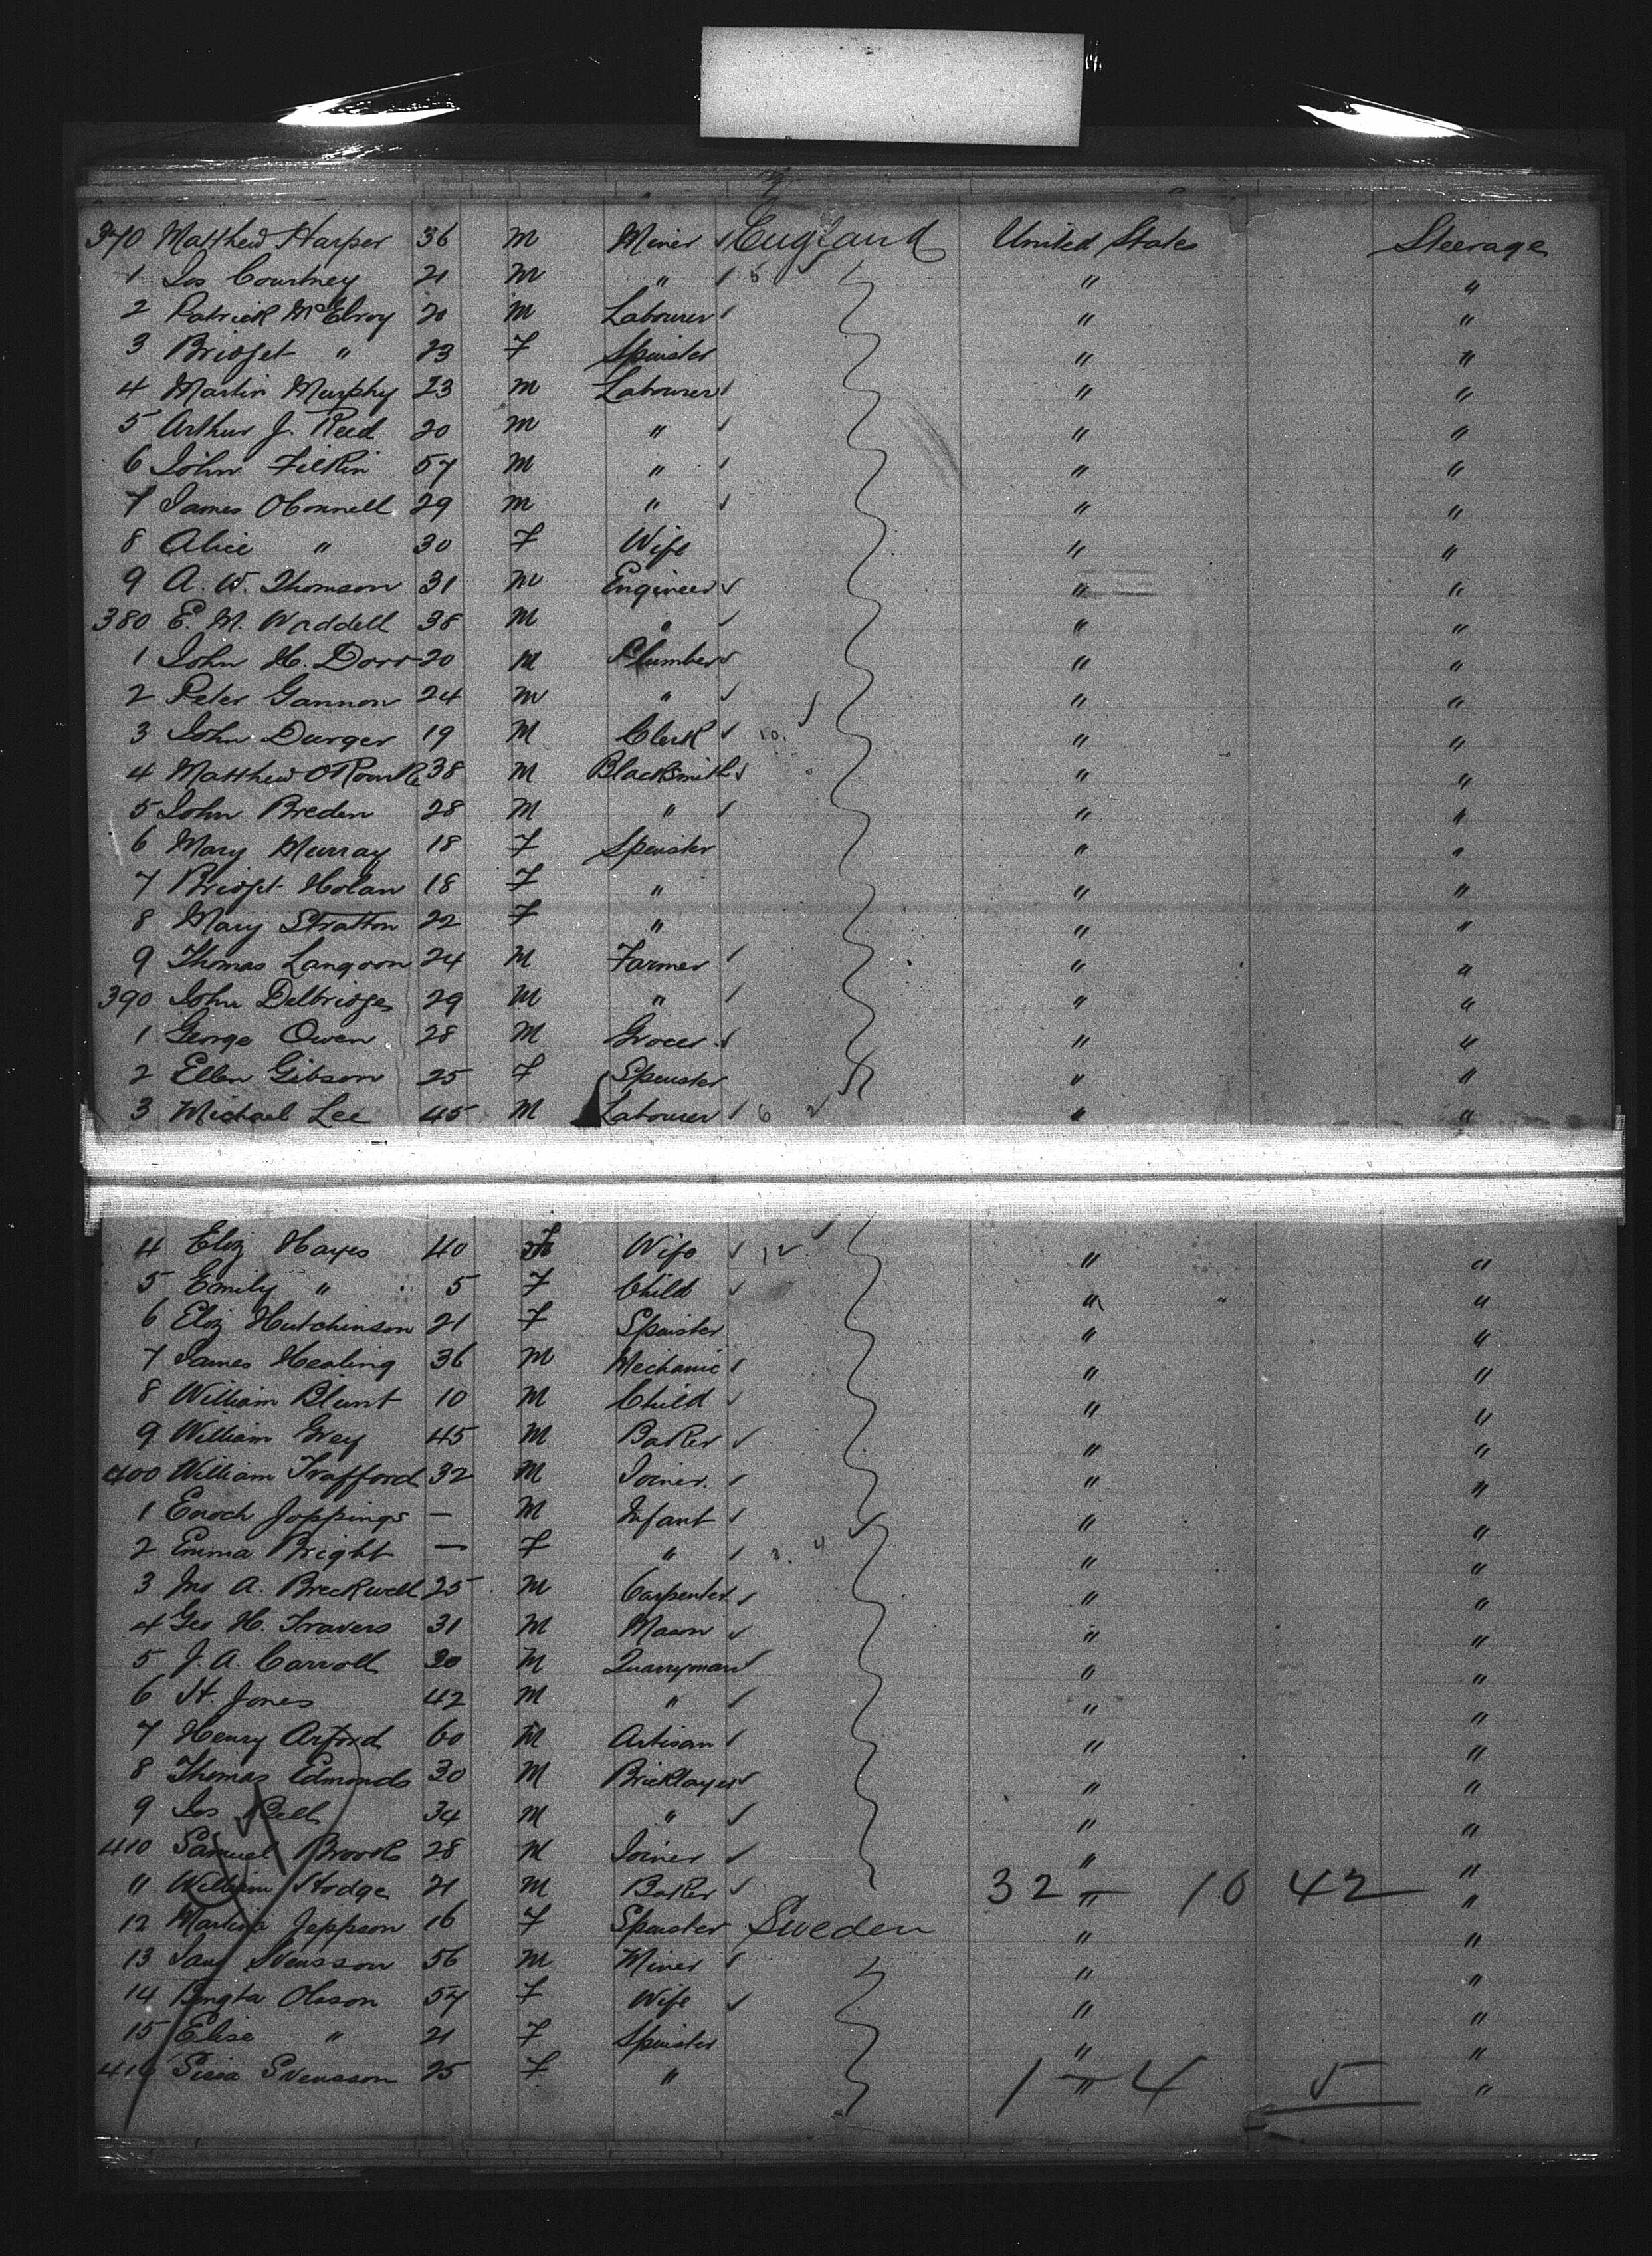 370 Matthew Harper 36 M Miner ✓ England United States Steerage
1 Jos Courtney 21 M " ✓ 5 ✓ " "
2 Patrick McElroy 20 M Labourer ✓ " "
3 Bridget " 23 F Spinster " "
4 Martin Murphy 23 M Labourer ✓ " "
5 Arthur J. Reed 20 M " ✓ " "
6 John Filkin 57 M " ✓ " "
7 James OConnell 29 M " ✓ " "
8 Alice " 30 F Wife " "
9 A. W. Thomson 31 M Engineer ✓ " "
380 E. M. Waddell 38 M " ✓ " "
1 John H. Dorr 20 M Plumber ✓ " "
2 Peter Gannon 24 M " ✓ " "
3 John Durger 19 M Clerk ✓ 10. ✓ " "
4 Matthew ORourke 38 M Blacksmith ✓ " "
5 John Breden 28 M " ✓ " "
6 Mary Murray 18 F Spinster " "
7 Bridget Holan 18 F " " "
8 Mary Stratton 22 F " " "
9 Thomas Langdon 24 M Farmer ✓ " "
390 John Delbridge 29 M " ✓ " "
1 George Owen 28 M Grocer ✓ " "
2 Ellen Gibson 25 F Spinster " "
3 Michael Lee 45 M Labourer ✓ 6 2 " "
4 Eliz Hayes 40 F Wife ✓ 12 ✓ " "
5 Emily " 5 F Child ✓ " "
6 Eliz Hutchinson 21 F Spinster " "
7 James Healing 36 M Mechanic ✓ " "
8 William Blunt 10 M Child ✓ " "
9 William Grey 45 M Baker ✓ " "
400 William Trafford 32 M Joiner. ✓ " "
1 Enoch Joppings — M Infant ✓ " "
2 Emma Bright — F " ✓ 3. 4 ✓ " "
3 Jno A. Breckwell 25 M Carpenter ✓ " "
4 Geo H. Travers 31 M Mason ✓ " "
5 J. A. Carroll 30 M Quarryman ✓ " "
6 H. Jones 42 M " ✓ " "
7 Henry Arford 60 M Artisan ✓ " "
8 Thomas Edmonds 30 M Bricklayer ✓ " "
9 Jos Bell 34 M " ✓ " "
410 Samuel Brooks 28 M Joiner ✓ " "
11 William Hodge 21 M Baker ✓ 32 — " 10 42 "
12 Jeppson 16 F Spinster Sweden " "
13 Svensson 56 M Miner ✓ " "
14 Bengta Olsson 57 F Wife ✓ " "
15 Elise " 21 F Spinster " "
416 Svensson 25 F " 1 — " 4 5 "